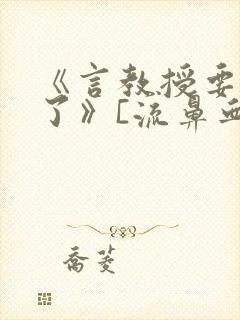 《言教授要
了》[流鼻血
乔菱